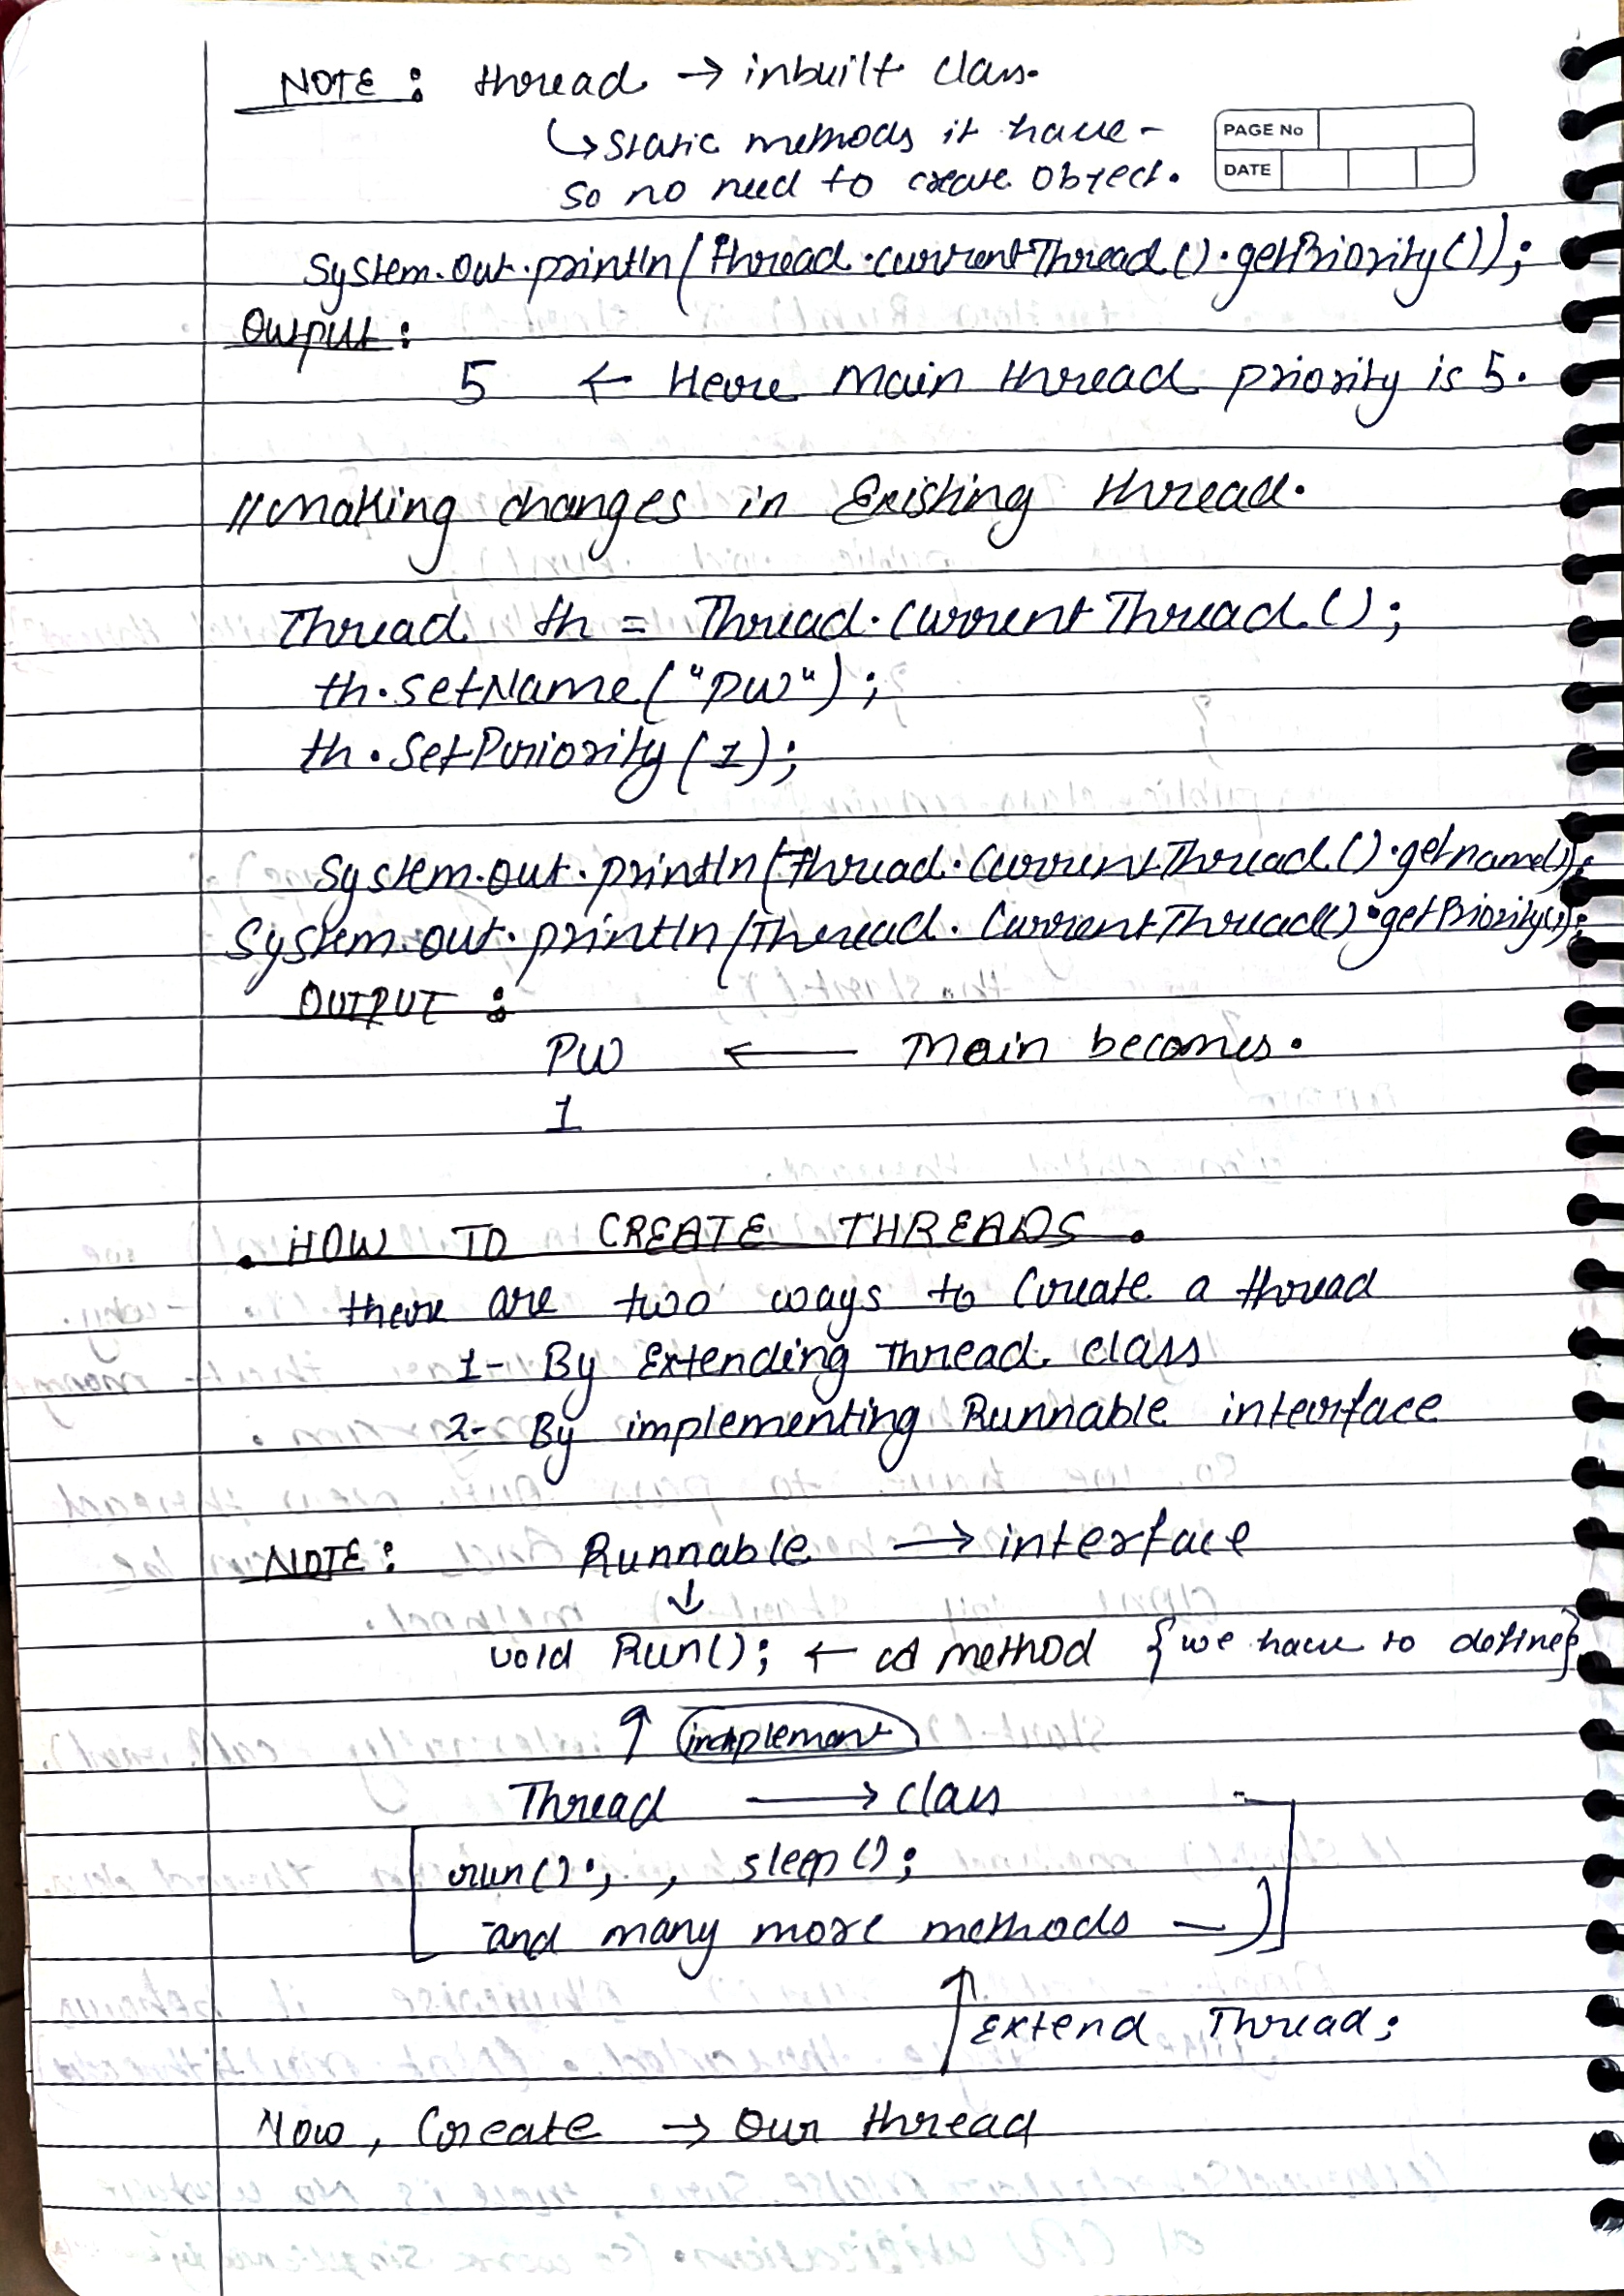 NOTE : thread → inbuilt class.
↳ static methods it have -
so no need to create object.
PAGE No
DATE
System.out.println(Thread.currentThread().getPriority());
Output :
5 ← Here Main thread priority is 5.
//Making changes in Existing thread.
Thread th = Thread.currentThread();
th.setName("PW");
th.setPriority(1);
System.out.println(Thread.CurrentThread().getname());
System.out.println(Thread.CurrentThread().getPriority());
OUTPUT :
PW ← Main becomes.
1
. HOW TO CREATE THREADS .
there are two ways to Create a thread
1- By Extending Thread class
2- By implementing Runnable interface
NOTE : Runnable → interface
↓
void Run(); ← method {we have to define}
↑ implement
Thread → class
run(); , sleep();
and many more methods
↑ Extend Thread;
Now, Create → Our thread